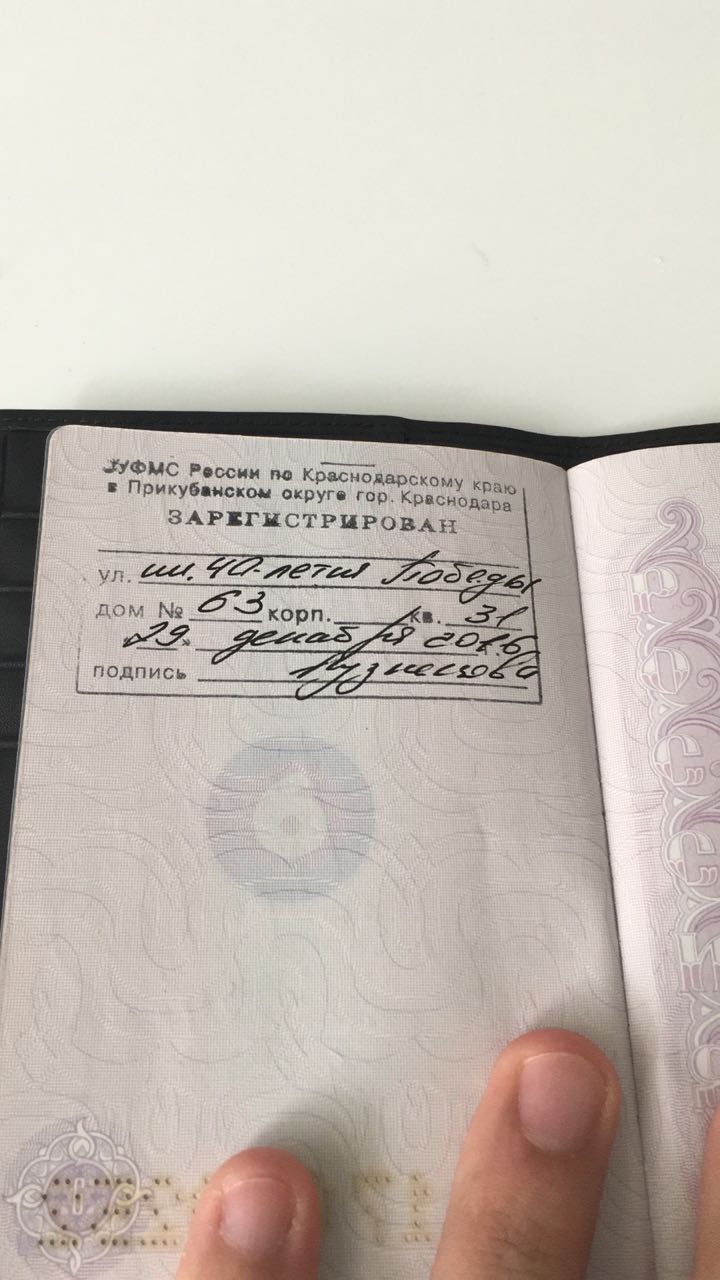 УФМС России по Краснодарскому краю
в Прикубанском округе гор. Краснодара
ЗАРЕГИСТРИРОВАН
ул. им. 40-летия Победы
дом № 63 корп. кв. 31
"29" декабря 2016
подпись Кузнецова